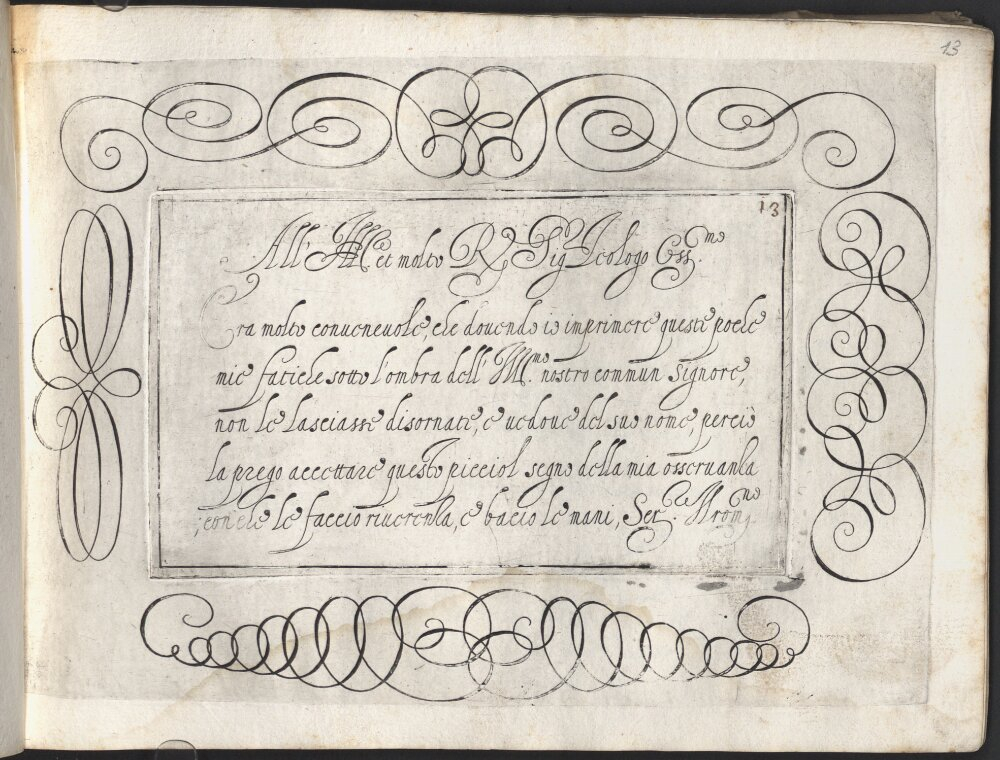 13
13
All' Ill et molto R Sig Teologo Oss.mo
Era molto conueneuole, che douendo io imprimere queste poche
mie fatiche sotto l'ombra dell' Ill.mo nostro commun Signore,
non le lasciasse disornate, e uedoue del suo nome, perciò
la prego accettare questo picciol segno della mia osseruanza
con che le faccio riuerenza, e bacio le mani, Ser.